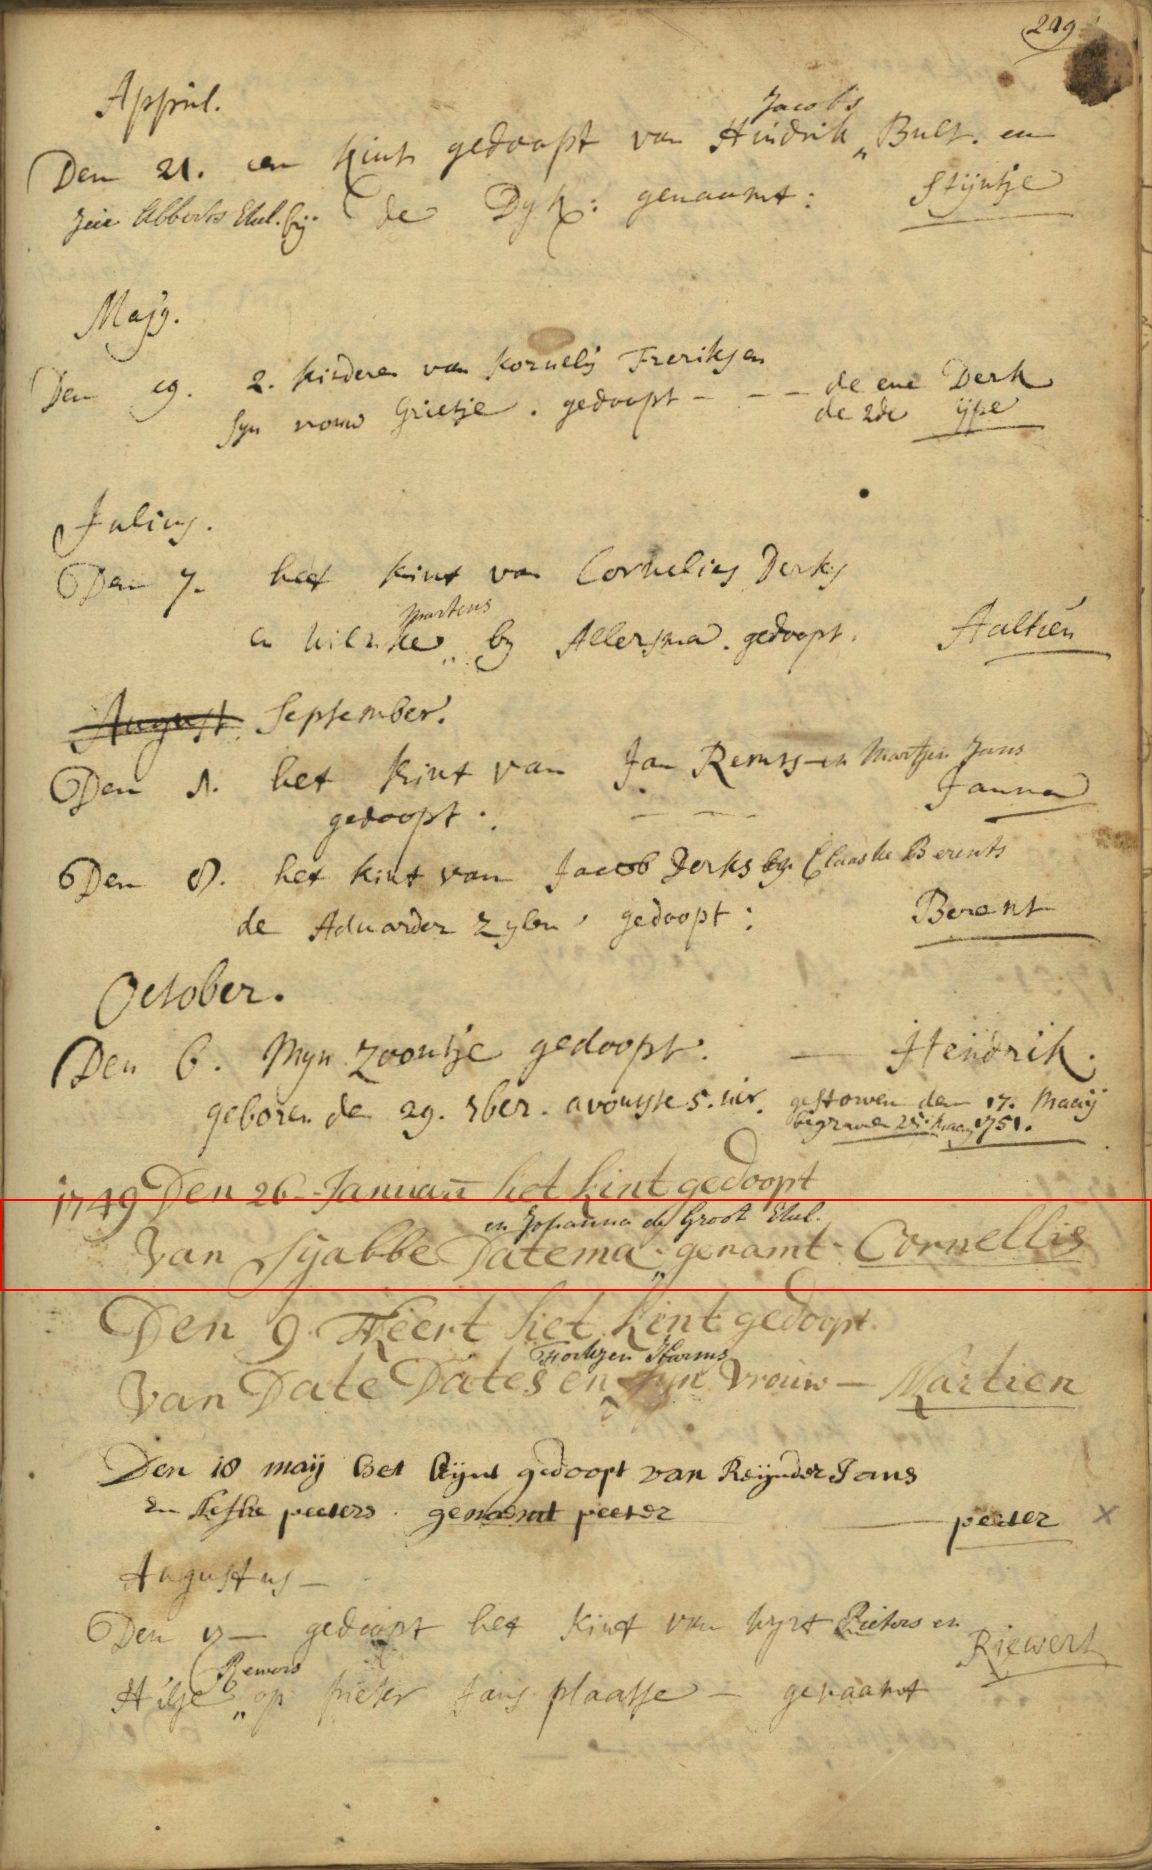 219
Appril.
Jacobs
Den 21. een kint gedoopt van Hindrik „ Bult. en
Abberts Ehel. bij de Dyk: genaamt: Stijntje
Majy.
Den 19. 2. kinderen van Kornelis Freriks en
syn vrouw Grietje. gedoopt - - - de ene Derk
de 2de ijpe
Julius.
Den 7. het kint van Cornelius Derks
Martens
en Wilmke „ by Allersma. gedoopt. Aaltien
August September.
Den 1. het kint van Jan Remts en Martjen Jans
gedoopt. Janna
Den 8. het kint van Jacob Derks by Claaske Berents
de Aduarder Zylen, gedoopt: Berent
October.
Den 6. Myn zoontje gedoopt. — Hendrik.
geboren de 29. 7ber. avonts 5. uer. gestorven den 17. Maaij
begraven 1751.
1749 Den 26 Januari het kint gedoopt
en Johanna de Groot Ehel.
Van Syabbe Datema „ genamt Cornellis
Den 9 Meert het kint gedoopt
Harms
Van Date Dates en syn vrouw — Martien
Den 18 maij het kijnt gedoopt van Reijnder Jans
en peeters genaemt peeter — peeter x
Augustus —
Den — gedoopt het kint van Wyrt Pieters en Riewert
Rewers
Hilje „ op pieter Jans plaatse — genaamt